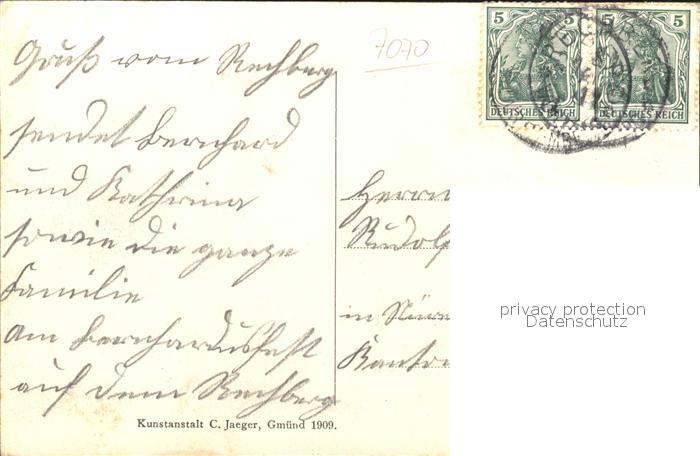 Gruß vom Rechberg
sendet Bernhard
und Kathrina
sowie die ganze
Familie
am Bernhardusfest
auf dem Rechberg
7070
5 5 5 5
DEUTSCHES REICH DEUTSCHES REICH
Herrn
Rudolf
in
Kunstanstalt C. Jaeger, Gmünd 1909.
privacy protection
Datenschutz